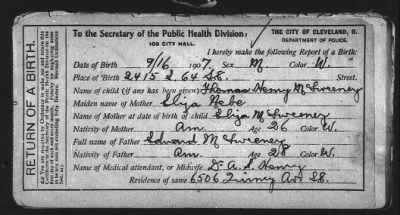 RETURN OF A BIRTH.
To the Secretary of the Public Health Division:
103 CITY HALL.
THE CITY OF CLEVELAND, O.
DEPARTMENT OF POLICE.
I hereby make the following Report of a Birth:
Date of Birth 9/16 1907. Sex M Color W.
Place of Birth 2415 E. 64 St. Street.
Name of child (if any has been given) Thomas Henry McSweeney
Maiden name of Mother Eliza Hebe
Name of Mother at date of birth of child Eliza McSweeney
Nativity of Mother Am. Age 26 Color W.
Full name of Father Edward McSweeney
Nativity of Father Am. Age 28 Color W.
Name of Medical attendant, or Midwife Dr A. S. Henry
Residence of same 6506 Quincy Ave SE.